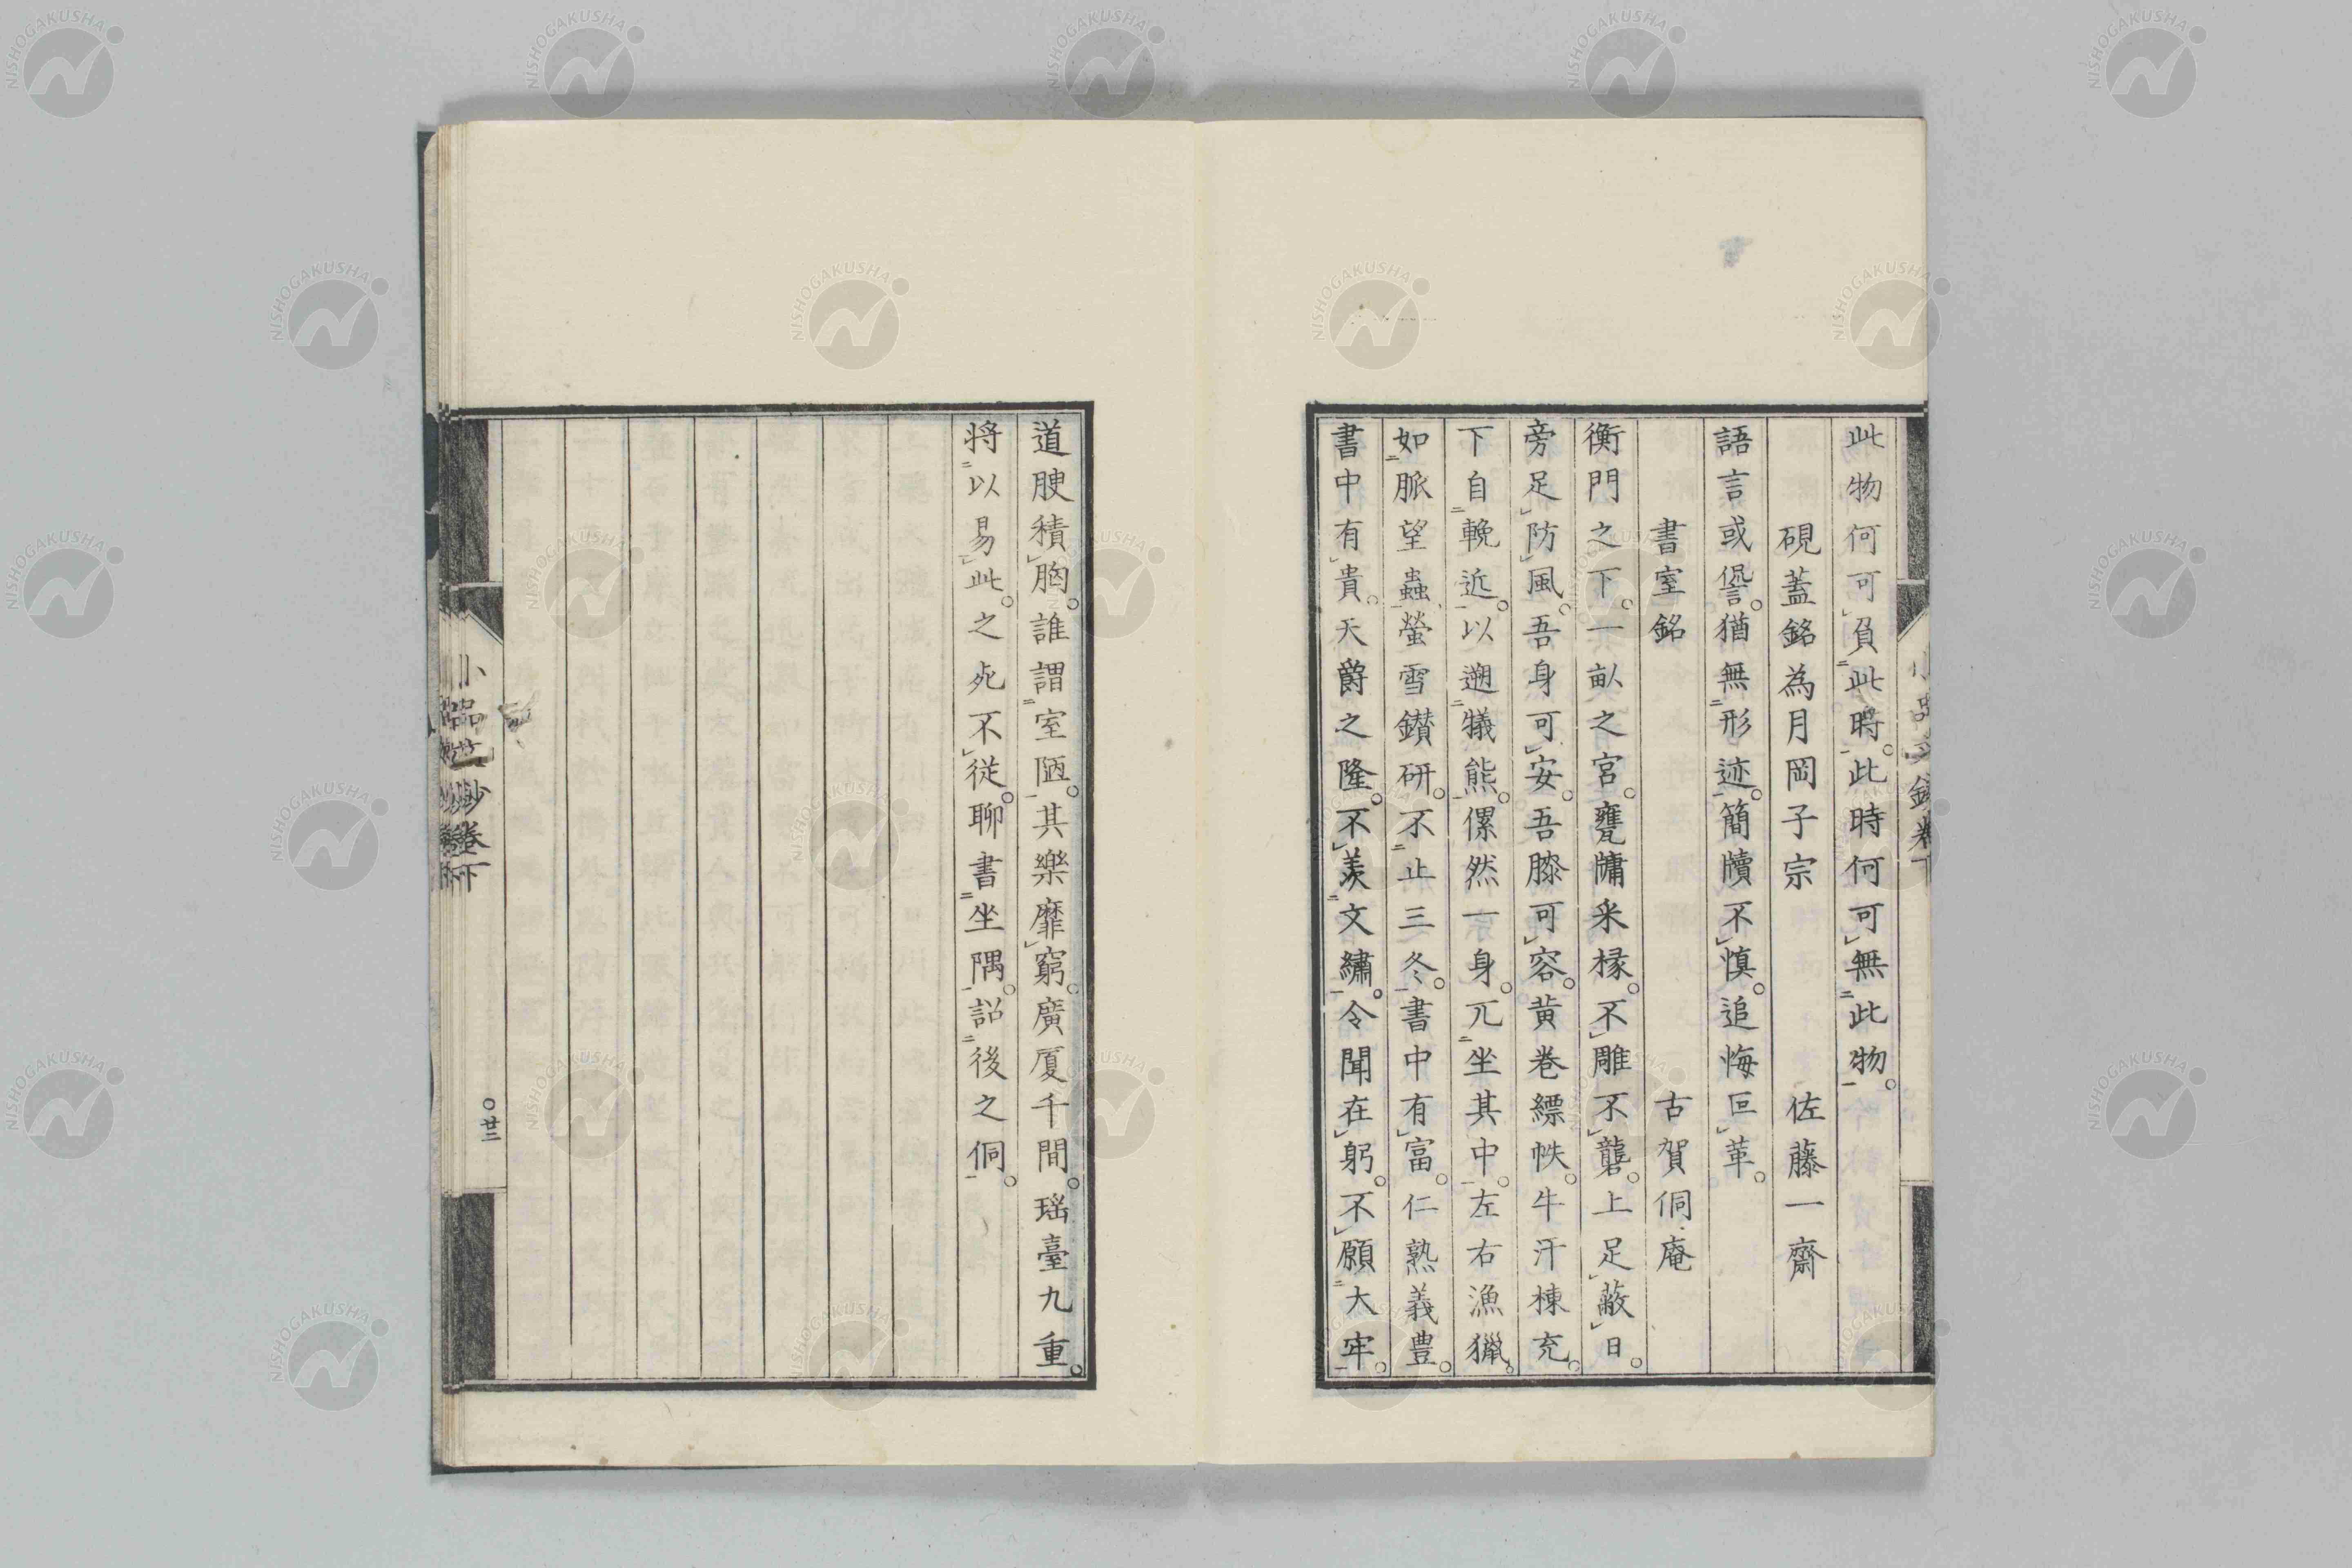 此物何可負此時。此時何可無此物。
硯蓋銘為月岡子宗 佐藤一齋
語言或諐。猶無形迹。簡牘不慎。追悔叵革。
書室銘 古賀侗庵
衡門之下。一畝之宮。甕牖采椽。不雕不礱。上足蔽日。
旁足防風。吾身可安。吾膝可容。黄巻縹帙。牛汗棟充。
下自輓近。以遡犠熊。傫然一身。兀坐其中。左右漁獵。
如脈望蟲。螢雪鑚研。不止三冬。書中有富。仁熟義豊。
書中有貴。天爵之隆。不羨文繡。令聞在躬。不願大牢。
道腴積胸。誰謂室陋。其樂靡窮。廣厦千間。瑶臺九重。
将以易此。之死不従。聊書坐隅。詔後之侗。
巻下
廿二
NISHOGAKUSHA